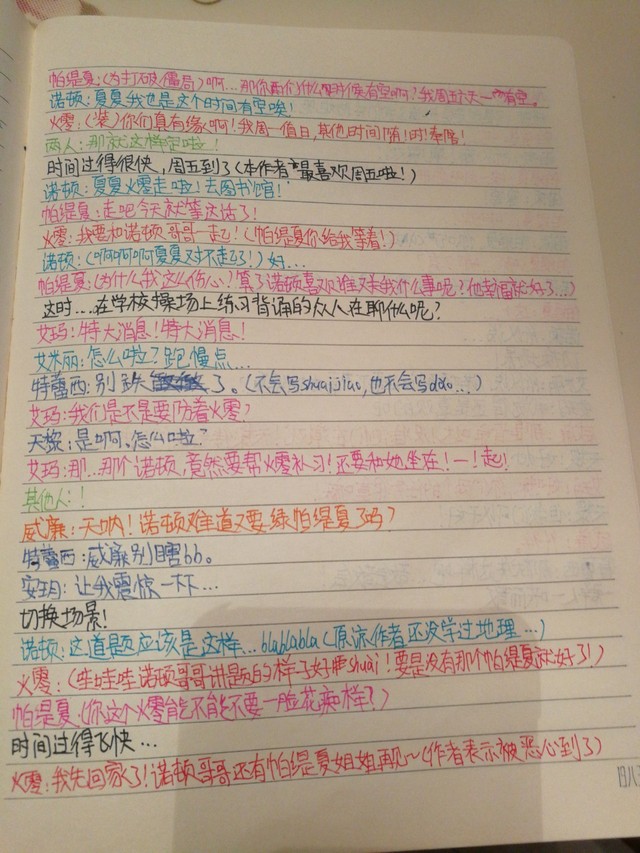 帕缇夏:(为打破僵局)啊...那你两们什么时候有空啊!我周五六天一有空。
诺顿:夏夏我也是这个时间有空唉!
火零:(装)你们真有缘啊!我周一值日,其他时间随!时!奉陪!
两人:那就这样定啦!
时间过得很快,周五到了(本作者最喜欢周五啦!)
诺顿:夏夏火零走啦!去图书馆!
帕缇夏:走吧今天就等这话了!
火零:我要和诺顿哥哥一起!(帕缇夏你给我等着!)
诺顿:(啊啊啊啊夏夏对不起!)好...
帕缇夏:(为什么我这么伤心?算了诺顿喜欢谁又关我什么事呢?他幸福就好了...)
这时...在学校操场上练习背诵的众人在聊什么呢?
艾玛:特大消息!特大消息!
艾米丽:怎么啦?跑慢点...
特蕾西:别跌了。(不会写shuaijiao,也不会写dao...)
艾玛:我们是不是要防着火零?
天黎:是啊。怎么啦?
艾玛:那...那个诺顿,竟然要帮火零补习!还要和她坐在!一!起!
其他人:!
威廉:天呐!诺顿难道又要绿帕缇夏了吗?
特蕾西:威廉别瞎bb。
安玥:让我震惊一下...
切换场景!
诺顿:这道题应该是这样...blablabla(原谅作者还没学过地理...)
火零:(哇哇哇诺顿哥哥讲题的样子好帅shuai!要是没有那个帕缇夏就好了!)
帕缇夏:(你这个火零能不能不要一脸花痴样?)
时间过得飞快...
火零:我先回家了!诺顿哥哥还有帕缇夏姐姐再见~(作者表示被恶心到了)